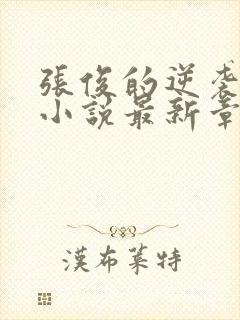 張俊的逆袭
小說最新章
漢布萊特